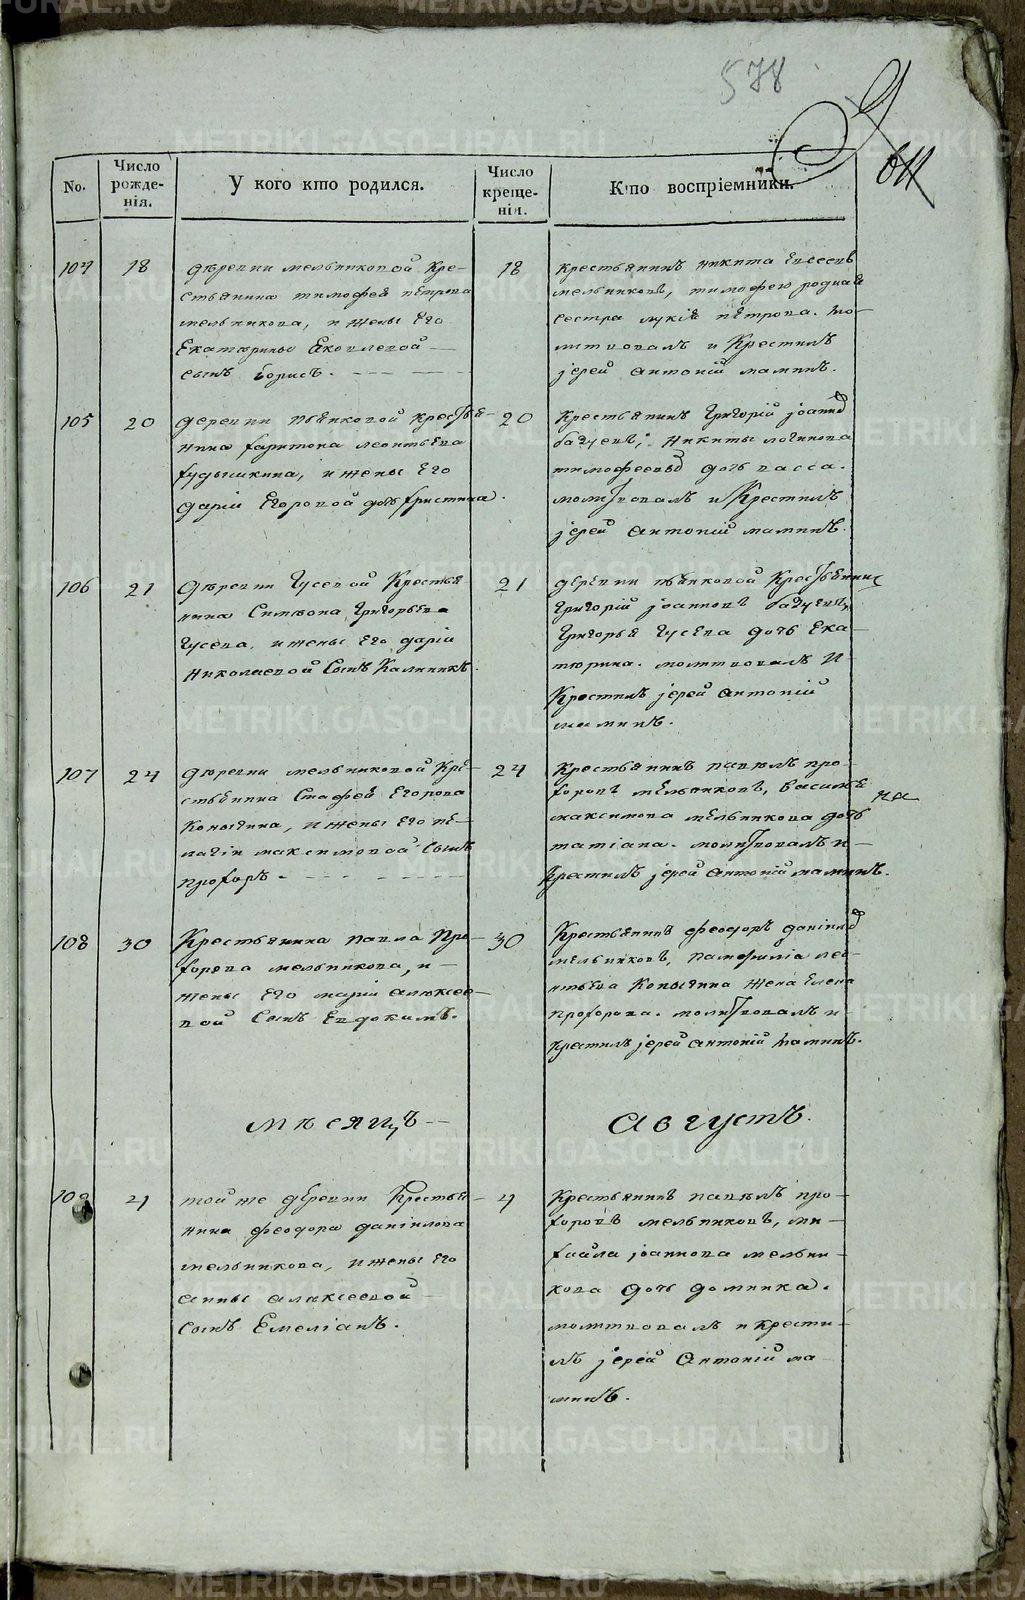 578
611
No.
Число рожде-нія.
У кого кто родился.
Число креще-нія.
Кто воспріемники.
104
18
деревни мельниковой Кре-
стьянина тимофея петрова
мельникова, и жены его
Екатерины Яковлевой
сынъ борисъ.
18
крестьянинъ никита
мельниковъ, тимофею родная
сестра лукія петрова. мо-
литвовалъ и Крестилъ
іерей антоній маминъ.
105
20
деревни пьянковой крестья-
нина харитона леонтьева
жены его
даріи Егоровой дочь христина.
20
Крестьянинъ Григорій іоаннов
никиты логинова
дочь васса.
молитвовалъ и Крестилъ
іерей антоній маминъ.
106
21
Деревни Гусевой Крестья
нина Симеона Григорьева
Гусева, и жены его даріи
Николаевой Сынъ Калинникъ.
21
деревни пьянковой Крестьянинъ
Григорій іоанновъ
Григорья Гусева дочь Ека-
терина. молитвовалъ И
Крестилъ іерей антоній
маминъ.
107
24
деревни мельниковой Кре-
стьянина Егорова
Копытина, И жены его пе-
лагіи максимовой Сынъ
прохоръ.
24
Крестьянинъ павелъ про-
хоровъ мельниковъ, василья
на
максимова мельникова дочь
татіана. молитвовалъ и
крестилъ іерей антоній маминъ.
108
30
Крестьянина павла Про-
хорова мельникова, и
жены его маріи алексее-
вой Сынъ Евдокимъ.
30
Крестьянинъ феодоръ даніилов
мельниковъ, леон-
тьева Копытина жена Елена
прохорова. молитвовалъ и
крестилъ іерей антоній маминъ.
мѣсяцъ
Августъ.
109
4
той же деревни Крестья-
нина феодора даніилова
мельникова, и жены его
анны алексеевой
сынъ Емеліанъ.
4
Крестьянинъ павелъ про-
хоровъ мельниковъ, ми-
хайла іоаннова мельни-
кова дочь домника.
молитвовалъ и крести-
лъ іерей Антоній ма-
минъ.
METRIKI.GASO-URAL.RU